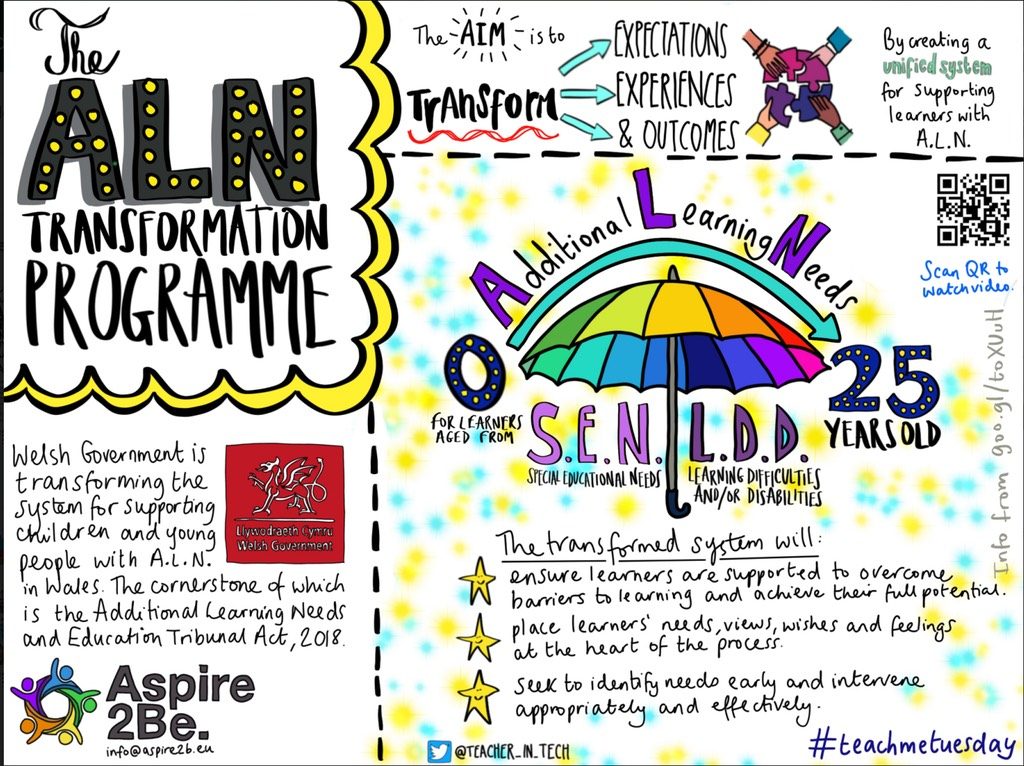 The
ALN
TRANSFORMATION
PROGRAMME
The AIM is to
Transform
EXPECTATIONS
EXPERIENCES
& OUTCOMES
By creating a
unified system
for supporting
learners with
A.L.N.
Scan QR to
watch video.
Additional Learning Needs
0
FOR LEARNERS
AGED FROM
25
YEARS OLD
S.E.N.
SPECIAL EDUCATIONAL NEEDS
L.D.D.
LEARNING DIFFICULTIES
AND/OR DISABILITIES
Info from goo.gl/toXUuH
Welsh Government is
transforming the
system for supporting
children and young
people with A.L.N.
in Wales. The cornerstone of which
is the Additional Learning Needs
and Education Tribunal Act, 2018.
Llywodraeth Cymru
Welsh Government
The transformed system will:
ensure learners are supported to overcome
barriers to learning and achieve their full potential.
place learners' needs, views, wishes and feelings
at the heart of the process.
seek to identify needs early and intervene
appropriately and effectively.
Aspire
2Be.
info@aspire2b.eu
@TEACHER_IN_TECH
#teachmetuesday